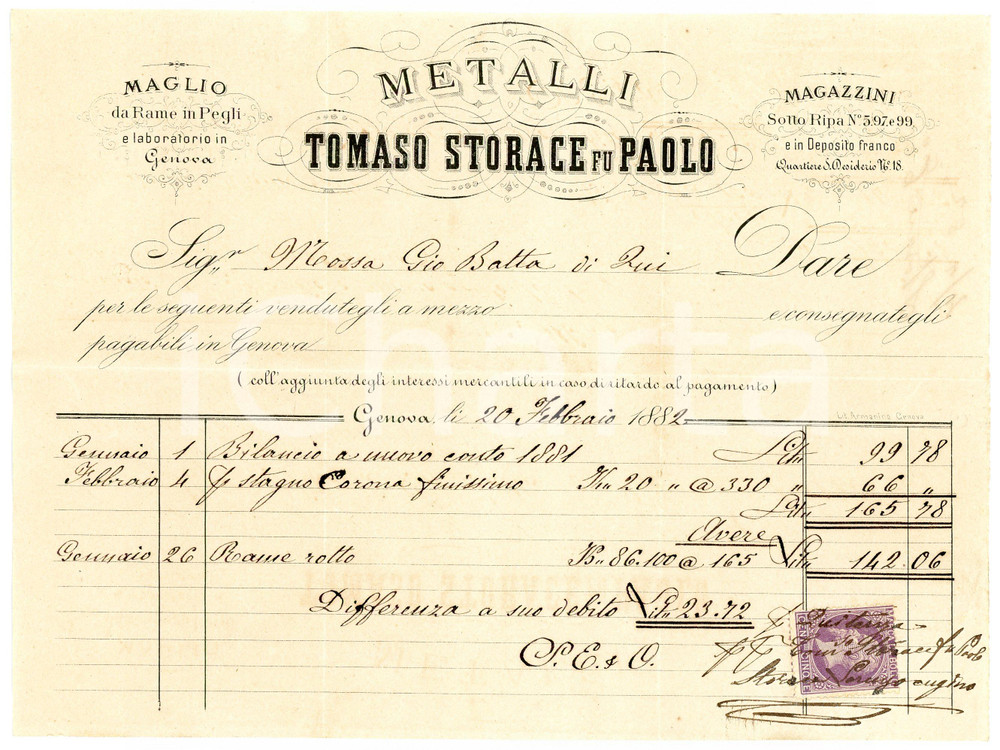 MAGLIO
da Rame in Pegli
e laboratorio in
Genova
METALLI
TOMASO STORACE FU PAOLO
MAGAZZINI
Sotto Ripa Nⁱ 5.97.e 99
e in Deposito franco
Quartiere S. Desiderio Nº 18.
Sigr Mossa Gio Batta di Qui Dare
per le seguenti vendutegli a mezzo e consegnategli
pagabili in Genova
(coll'aggiunta degli interessi mercantili in caso di ritardo al pagamento)
Genova, li 20 Febbraio 1882
Lit. Armanino, Genova
Gennaio 1 Bilancio a nuovo conto 1881 Lit 99 78
Febbraio 4 p stagno Corona finissimo K 20 " @ 330 " 66 "
Lit 165 78
Avere
Gennaio 26 Rame rotto K 86.100 @ 165 Lit 142 06
Differenza a suo debito Lit 23.72
S. E. & O.
p Quitanza
pp Tom Storace fu Paolo
Storace cugino
CENTESIMI
charta